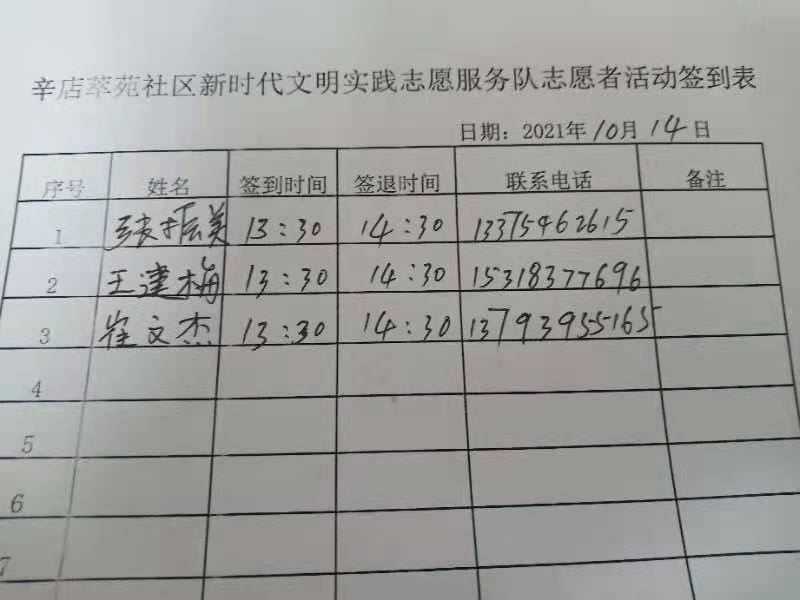 辛店萃苑社区新时代文明实践志愿服务队志愿者活动签到表
日期：2021年10月14日
序号 姓名 签到时间 签退时间 联系电话 备注
1 张振美 13:30 14:30 13375462615
2 王建梅 13:30 14:30 15318377696
3 崔文杰 13:30 14:30 13793955165
4
5
6
7